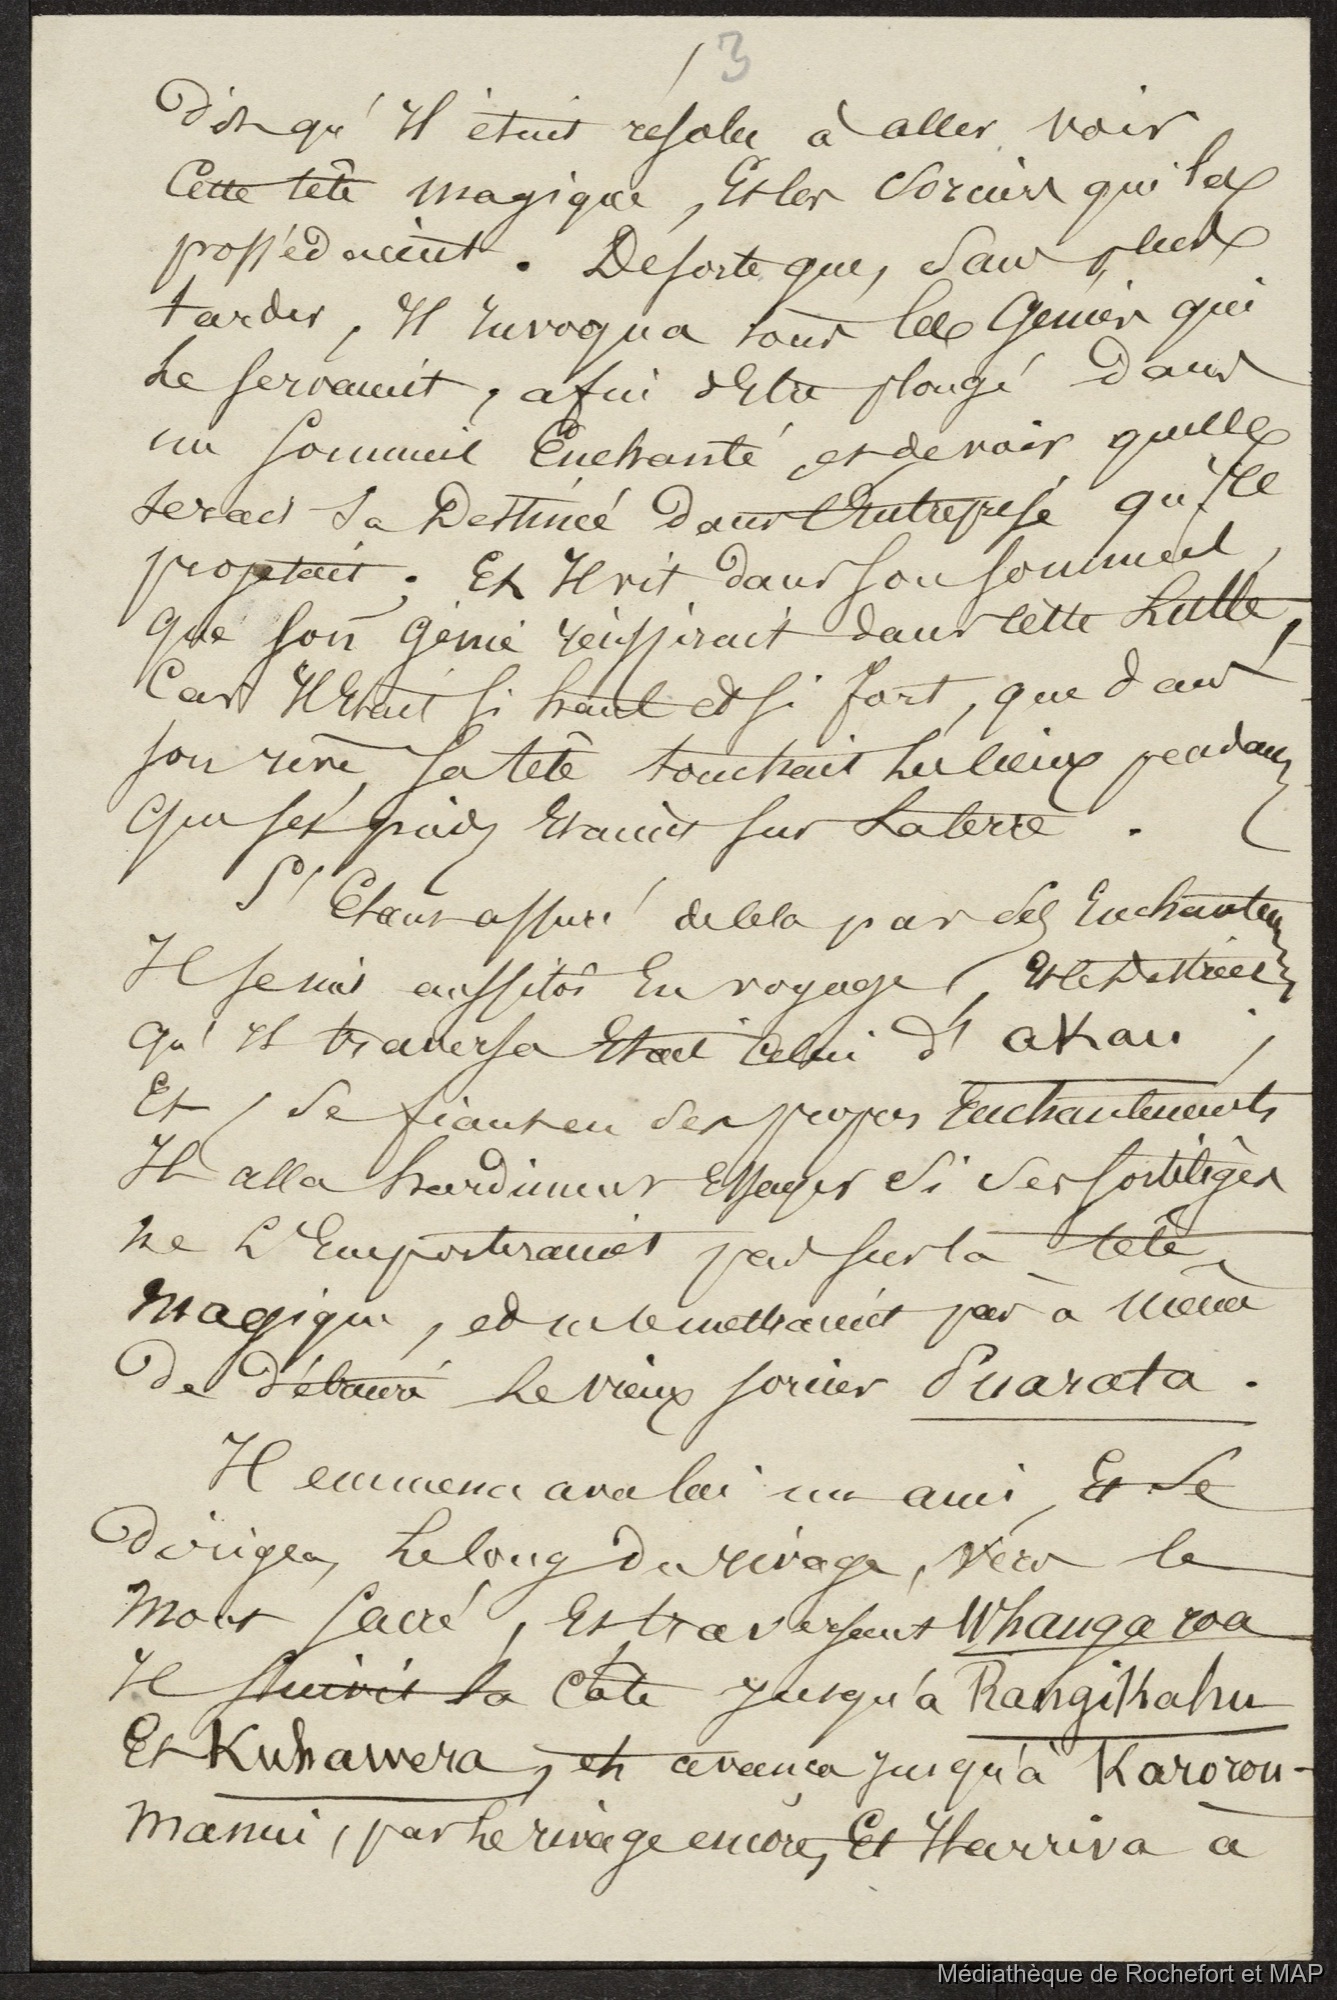 3
dit qu'il était résolu à aller voir
Cette tête magique, Et les Sorciers qui la
possédaient. De sorte que, sans plus
tarder, Il Invoqua tous les Génies qui
le servaient, afin d'Etre plongé dans
un sommeil Enchanté, et de voir quelle
serait sa Destinée dans l'Entreprise qu'Il
projetait ; Et Il vit dans son sommeil,
que son génie réussirait dans cette Lutte,
Car Il Etait si haut et si fort, que dans
son rêve, sa tête touchait les cieux pendant
que ses pieds Etaient sur La terre.
S'Etant assuré de cela par ses Enchantem
Il se mit aussitôt En voyage, Et le District
qu'Il traversa Etait celui d'akau ;
Et, se fiant en ses propres Enchantements
Il alla hardiment Essayer si ses sortilèges
ne L'Emporteraient pas sur la tête
magique, et ne le mettraient pas à même
de détruire le vieux sorcier Puarata.
Il emmena avec lui un ami, Et se
dirigea, le long du rivage, vers le
Mont sacré, Et traversant Whangaroa
Il suivit la Côte jusqu'à Rangikahu
Et Kuhawera, et avança jusqu'à Karorou-
manui, par le rivage encore, Et Il arriva à
Médiathèque de Rochefort et MAP